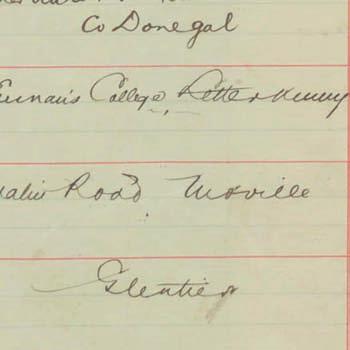 Co Donegal
Eunan's College, Letterkenny
Road Moville
Glenties